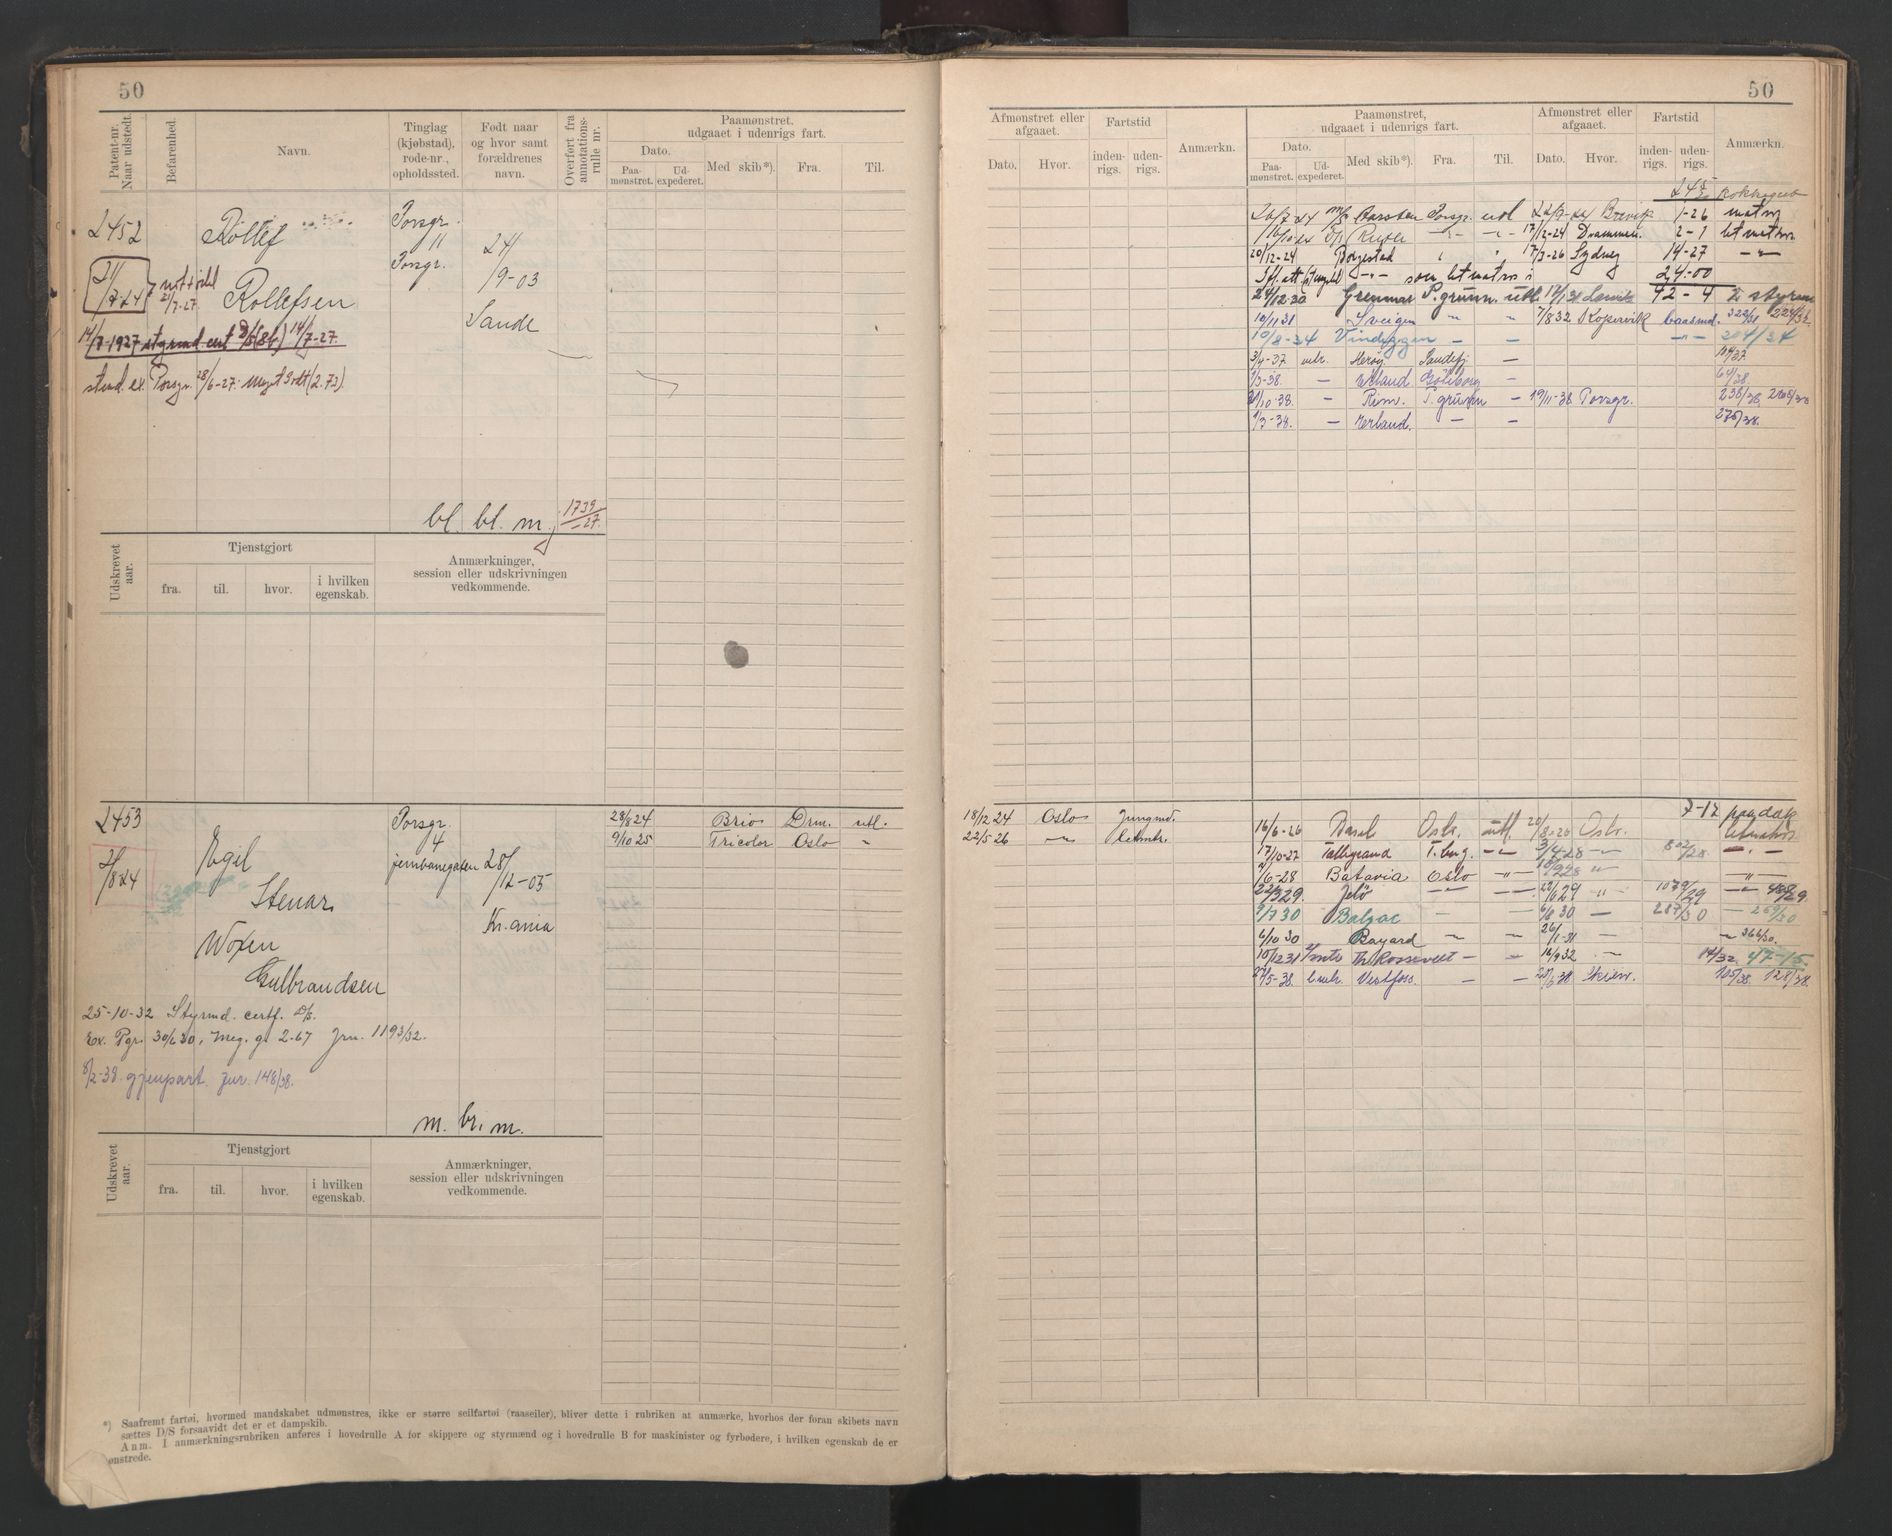 50
Patent-nr. Naar udstedt.
Befarenhed.
Navn.
Tinglag (kjøbstad), rode-nr., opholdssted.
Født naar og hvor samt forældrenes navn.
Overført fra annotations-rulle nr.
Paamønstret, udgaaet i udenrigs fart.
Dato.
Paa-mønstret.
Ud-expederet.
Med skib*).
Fra.
Til.
2452
Rollef
Rollefsen
Porsgr.
11
Porsgr.
24/
/9-03
Sande
21/
/7-24
21/7-27.
14/7-1927 styrmd. cert D/S (86) 14/7-27.
stmd. ex. Porsgr. 28/6-27. Meget godt (2.73).
bl. bl. m.
1739/-27.
Udskrevet aar.
Tjenstgjort
fra.
til.
hvor.
i hvilken egenskab.
Anmærkninger, session eller udskrivningen vedkommende.
2453
2/
/8-24
Egil
Stenar
Woxen
Gulbrandsen
Porsgr.
4
jernbanegaten
28/
/12-05
Kr.ania
28/8 24 Brio Drm. utl.
9/10 25 Tricolor Oslo "
25-10-32 Styrmd. certf. D/S.
Ex. Pgr. 30/6 30, Meg. g. 2.67 Jrn. 1193/32.
8/2-38. gjenpart. Jur. 148/38.
m. br. m.
Udskrevet aar.
Tjenstgjort
fra.
til.
hvor.
i hvilken egenskab.
Anmærkninger, session eller udskrivningen vedkommende.
*) Saafremt fartøi, hvormed mandskabet udmønstres, ikke er større seilfartøi (raaseiler), bliver dette i rubriken at anmærke, hvorhos der foran skibets navn
sættes D/S forsaavidt det er et dampskib.
Anm. I anmærkningsrubriken anføres i hovedrulle A for skippere og styrmænd og i hovedrulle B for maskinister og fyrbødere, i hvilken egenskab de er
ønstrede.
50
Afmønstret eller afgaaet.
Dato.
Hvor.
Fartstid
inden-rigs.
uden-rigs.
Anmærkn.
Paamønstret, udgaaet i udenrigs fart.
Dato.
Paa-mønstret.
Ud-expederet.
Med skib*).
Fra.
Til.
Afmønstret eller afgaaet.
Dato.
Hvor.
Fartstid
inden-rigs.
uden-rigs.
Anmærkn.
26/7 24 M/S Carsten Porsgr. utl 22/9-24 Brevik 1-26 matros
17/12-24 Drammen. 2-1 letmatros
20/12-24 Borgestad 17/3-26 Sydney 14-27 -"-
24-00
24/12.30 Grenmar P.grunn. utl. 17/1 31 Larvik 42-4 2 styrm
10/11 31 Sveigen " " 7/8 32 Kopervik baasmd. 322/31 224/32.
10/8-34 Vindeggen - - -"- 204/34
3/4-37 Herøy Sandefj -
1/3-38. - Erland Göteborg - 64/38.
- Rim. P.grunn - 19/11-38 Porsgr. 238/38
1/3-38. - Erland. - - 276/38.
18/12 24 Oslo Jungmd.
22/5 26 -"- Letmtr.
7-12 paa dæk
16/6-26 Oslo. utl Oslo. letmatros
17/10-27 Talleyrand T.berg. -"- 3/4-28 -"- 802/28 -"-
/6-28 Batavia Oslo -"- "
22/3 29. Jelø -"- -"- " 1079/29
9/7 30 Balzac - - 6/8 30 - 287/30 - 269/30
6/10 30 Bayard - - 26/1-31 - 366/30.
15/12 31 Th. Roosevelt - - 16/9 32 - 47-15.
Vestfoss. - - Skien. 105/38. 128/38.